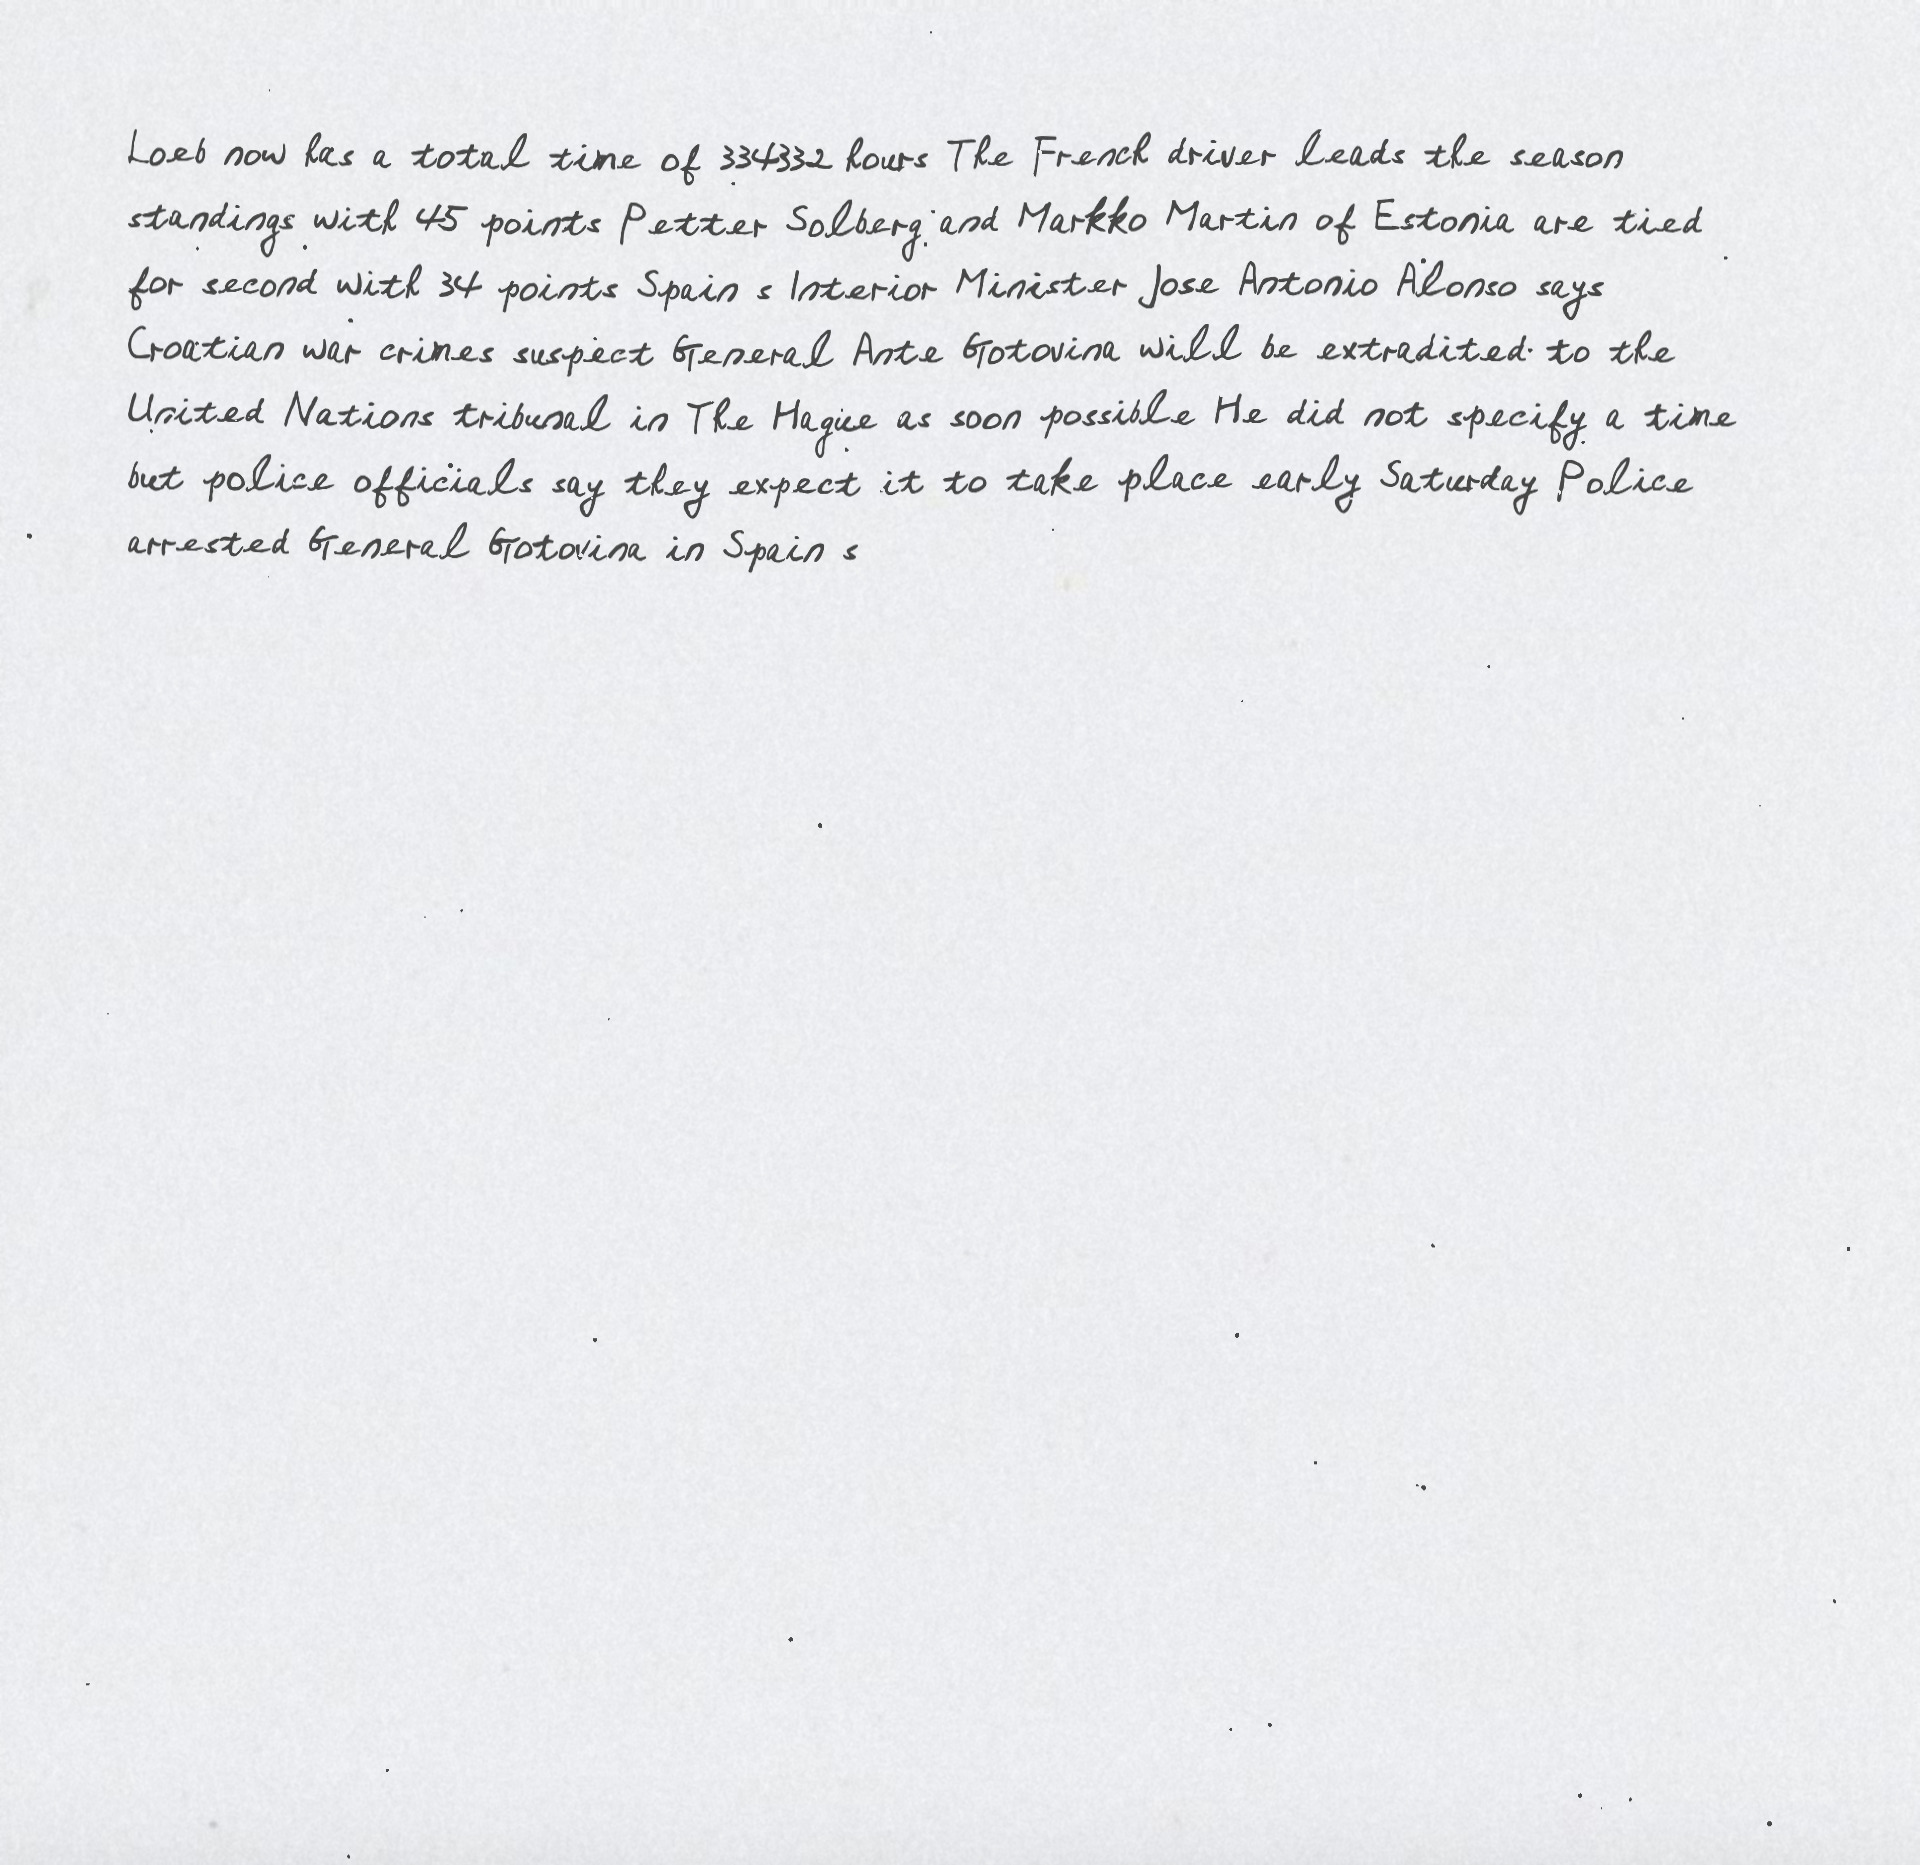 Loeb now has a total time of 334332 hours The French driver leads the season
standings with 45 points Petter Solberg and Markko Martin of Estonia are tied
for second with 34 points Spain s Interior Minister Jose Antonio Alonso says
Croatian war crimes suspect General Ante Gotovina will be extradited to the
United Nations tribunal in The Hague as soon possible He did not specify a time
but police officials say they expect it to take place early Saturday Police
arrested General Gotovina in Spain s